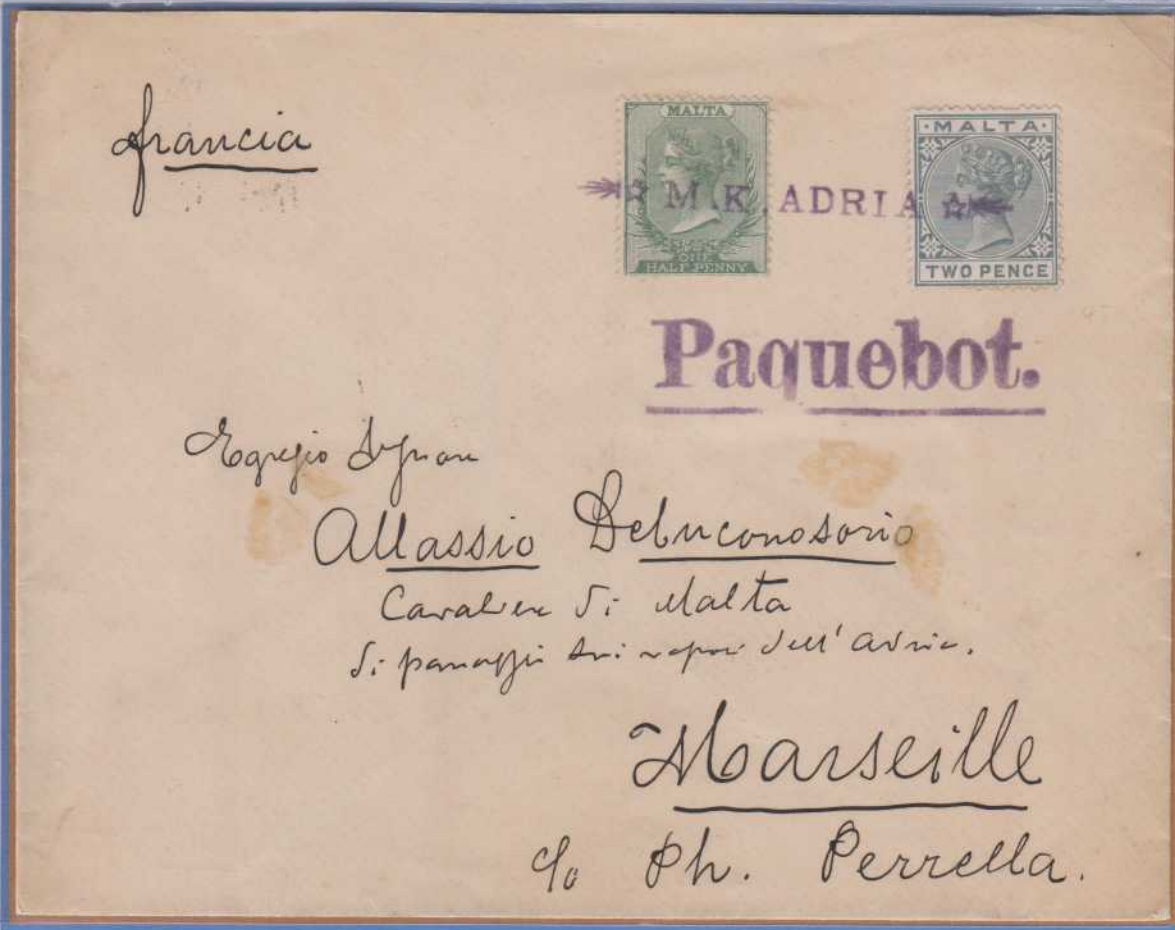 francia
MALTA
ONE
HALF-PENNY
· MALTA ·
TWO PENCE
M.K. ADRIA
Paquebot.
Egregio Signore
Allassio Debuconosorio
Cavaliere di Malta
di passaggio sui vapori dell' Adria.
Marseille
c/o Ph. Perrella.